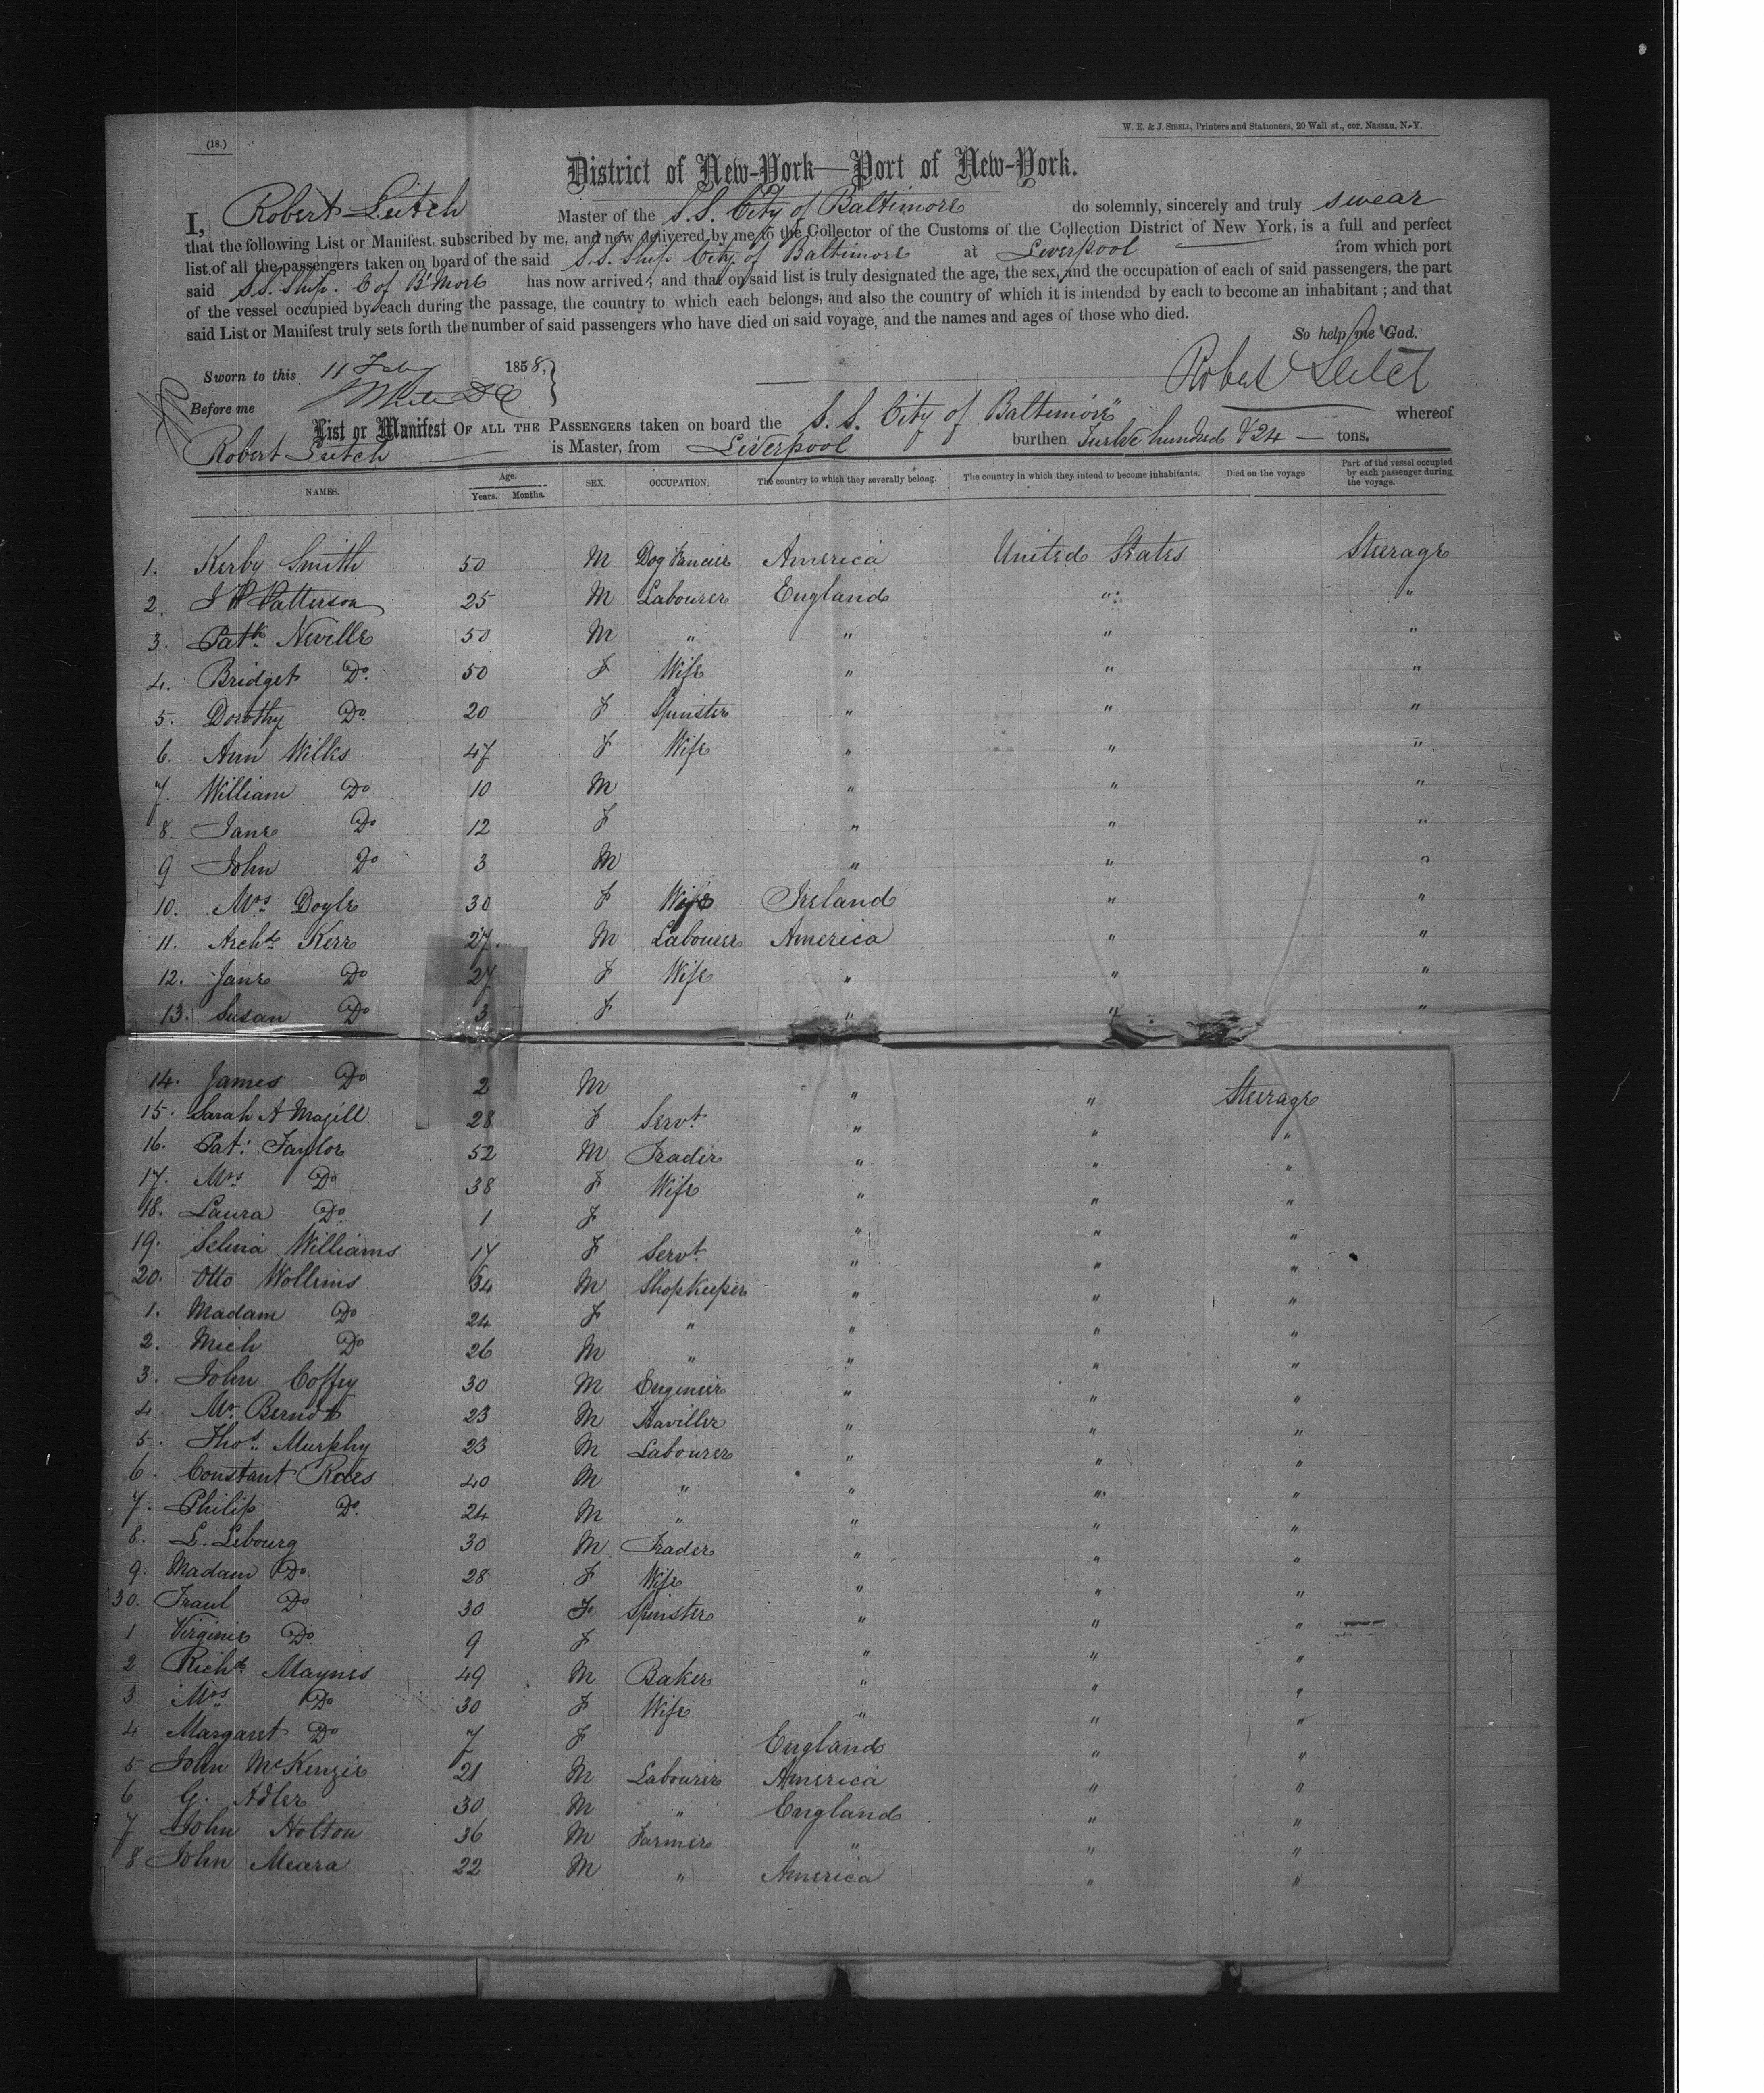 (18.)
W. E. & J. SIBELL, Printers and Stationers, 20 Wall st., cor. Nassau, N. Y.
District of New-York—Port of New-York.
I, Robert Leitch Master of the S.S. City of Baltimore do solemnly, sincerely and truly swear
that the following List or Manifest, subscribed by me, and now delivered by me to the Collector of the Customs of the Collection District of New York, is a full and perfect
list of all the passengers taken on board of the said S.S. Ship City of Baltimore at Liverpool from which port
said S.S. Ship. C of B'More has now arrived; and that on said list is truly designated the age, the sex, and the occupation of each of said passengers, the part
of the vessel occupied by each during the passage, the country to which each belongs, and also the country of which it is intended by each to become an inhabitant; and that
said List or Manifest truly sets forth the number of said passengers who have died on said voyage, and the names and ages of those who died.
So help me God.
Sworn to this 11 Feby 1858,
Robert Leitch
Before me
List or Manifest OF ALL THE PASSENGERS taken on board the S.S. City of Baltimore" whereof
Robert Leitch is Master, from Liverpool burthen Twelve hundred & 24 — tons.
NAMES. Age. Years. Months. SEX. OCCUPATION. The country to which they severally belong. The country in which they intend to become inhabitants. Died on the voyage Part of the vessel occupied by each passenger during the voyage.
1. Kerby Smith 50 M Dog Fancier America United States Steerage
2. J P Patterson 25 M Labourer England " "
3. Patk Neville 50 M " " " "
4. Bridget Do. 50 F Wife " " "
5. Dorothy Do 20 F Spinster " " "
6. Ann Wilks 47 F Wife " " "
7. William Do 10 M " " "
8. Jane Do 12 F " " "
9 John Do 3 M " " "
10. Mrs Doyle 30 F Wife Ireland " "
11. Archd Kerr 27. M Labourer America " "
12. Jane Do 27 F Wife " " "
13. Susan Do 3 F " " "
14. James Do 2 M " " Steerage
15. Sarah A Magill 28 F Servt " " "
16. Pat: Taylor 52 M Trader " " "
17. Mrs Do 38 F Wife " " "
18. Laura Do. 1 F " " "
19. Selina Williams 17 F Servt " " "
20. Otto Wollrins 34 M Shopkeeper " " "
1. Madam Do 24 F " " " "
2. Mich Do 26 M " " " "
3. John Coffey 30 M Engineer " " "
4. Mr. Berndt 23 M Traviller " " "
5. Thos. Murphy 23 M Labourer " " "
6. Constant Roies 40 M " " " "
7. Philip Do. 24 M " " " "
8. L. Lebourg 30 M Trader " " "
9. Madam Do 28 F Wife " " "
30. Fraul Do 30 F Spinster " " "
1 Virginie Do. 9 F " " "
2 Richd Maynes 49 M Baker " " "
3 Mrs Do 30 F Wife " " "
4 Margaret Do 7 F England " "
5 John McKenzie 21 M Labourer America " "
6 G. Adler 30 M " England " "
7 John Holton 36 M Farmer " " "
8 John Meara 22 M " America " "